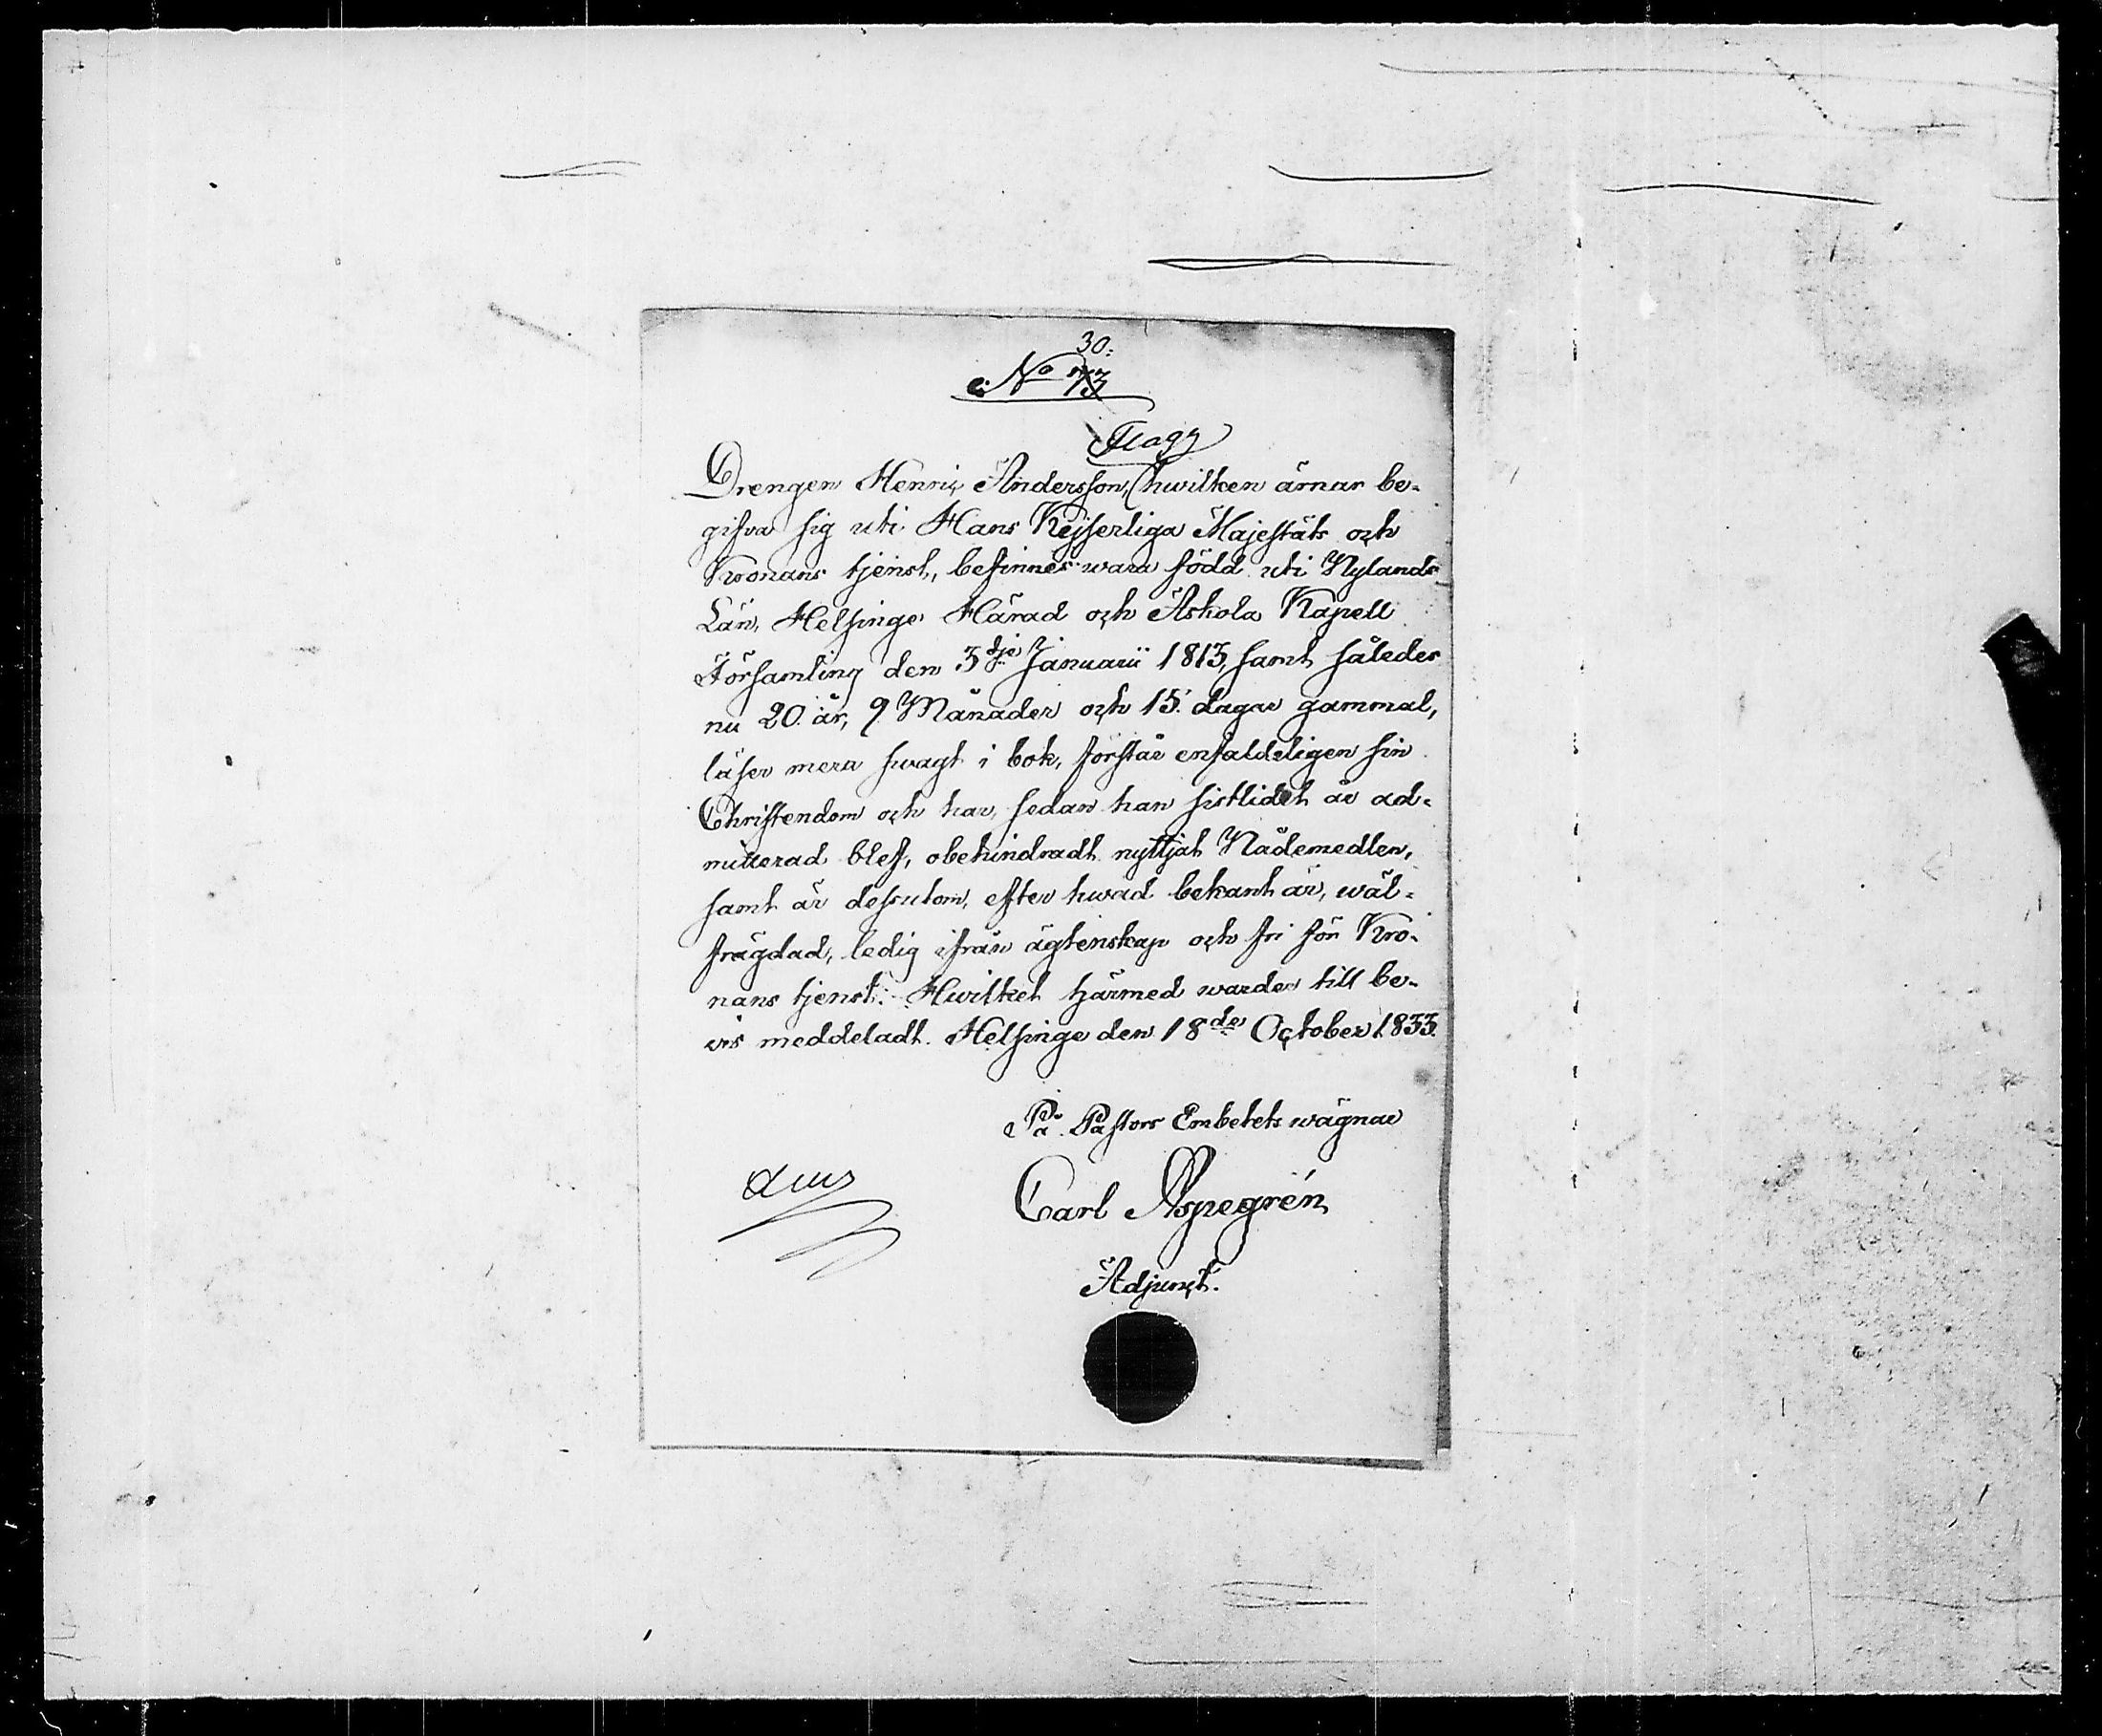 30.
No 73
Flagg
Drengen Henric Andersson, hwilken ärnar be-
gifva sig uti Hans Kejserliga Majestäts och
Kronans tjenst, befinnes wara född uti Nylands
Län, Helsinge Härad och Askola Kapell
Församling den 3dje Januarii 1813, samt således
nu 20 år, 9 Månader och 15 dagar gammal,
läser mera swagt i bok, förstår enfaldeligen sin
Christendom och har, sedan han sistlidet år ad-
mitterad blef, obehindradt nyttjat Nådemedlen,
samt är dessutom, efter hwad bekant är, wäl-
frägdad, ledig ifrån ägtenskap och fri för Kro-
nans tjenst. Hwilket härmed warder till be-
vis meddeladt. Helsinge den 18de October 1833.
På Pastors Embetets wägnar
Carl Aspegrén
Adjunct.